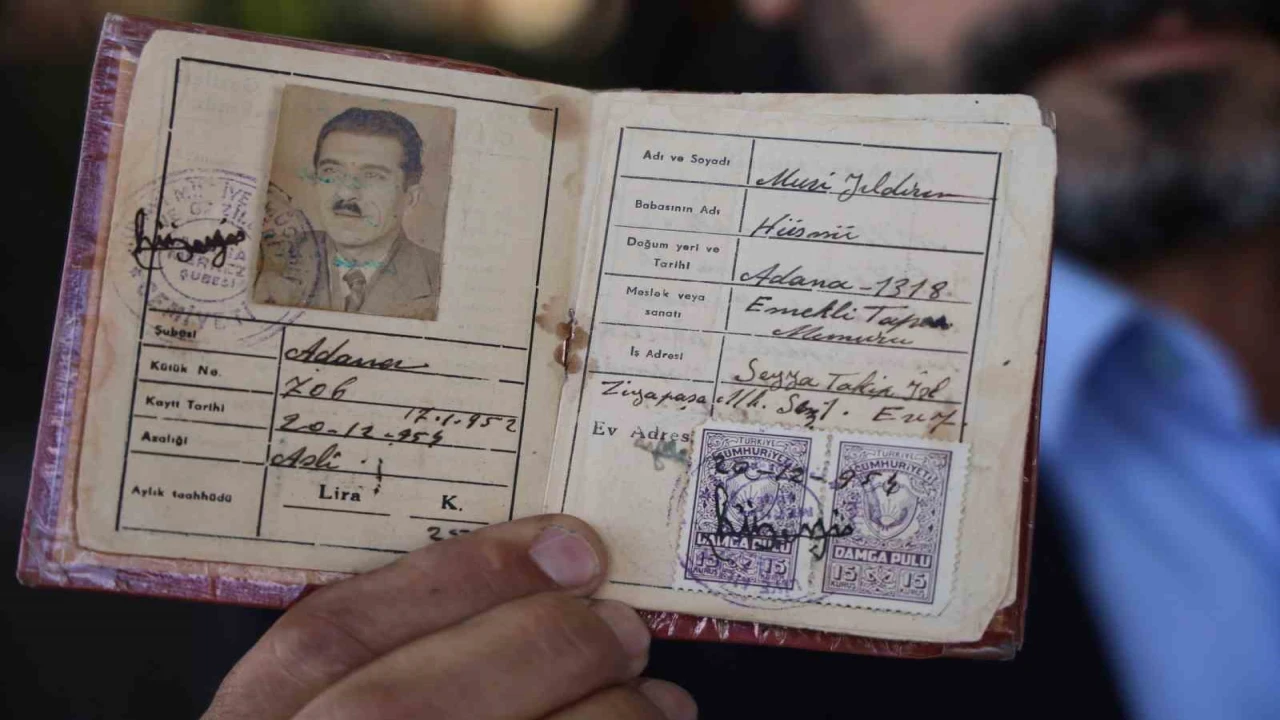 Şubesi Adana
Kütük No. 706
Kayıt Tarihi 20-12-954 17.1.952
Azalığı Asli
Aylık taahhüdü Lira K.
Adı ve Soyadı Musi Yıldırım
Babasının Adı Hüsnü
Doğum yeri ve Tarihi Adana - 1318
Meslek veya sanatı Emekli Tapu Memuru
İş Adresi
Ziyapaşa Mh.
Ev Adresi
TÜRKİYE TÜRKİYE
CUMHURİYETİ CUMHURİYETİ
20-12-954
DAMGA PULU DAMGA PULU
15 15 15 15
KURUŞ KURUŞ
ŞUBESİ